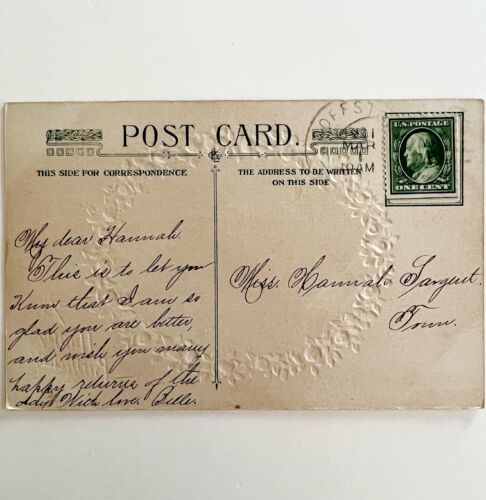 OFFST
POST CARD.
1
MAR
10AM
U.S. POSTAGE
ONE CENT
THIS SIDE FOR CORRESPONDENCE
THE ADDRESS TO BE WRITTEN
ON THIS SIDE
My dear Hannah.
This is to let you
Know that I am so
glad you are better,
and wish you many
happy returns of the
day. With love. Belle.
Miss. Hannah Sargent.
Town.